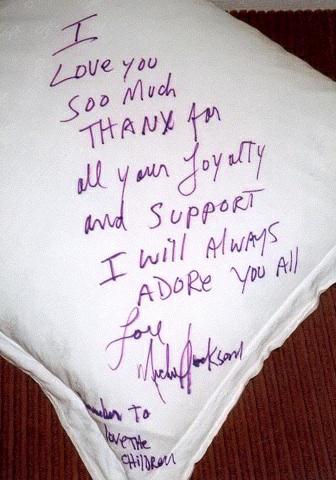 I
Love you
Soo Much
THANX for
all your Loyalty
and SUPPORT
I will AlwAYS
ADORe You All
Love
Michael Jackson
to
love THe
CHilDReN